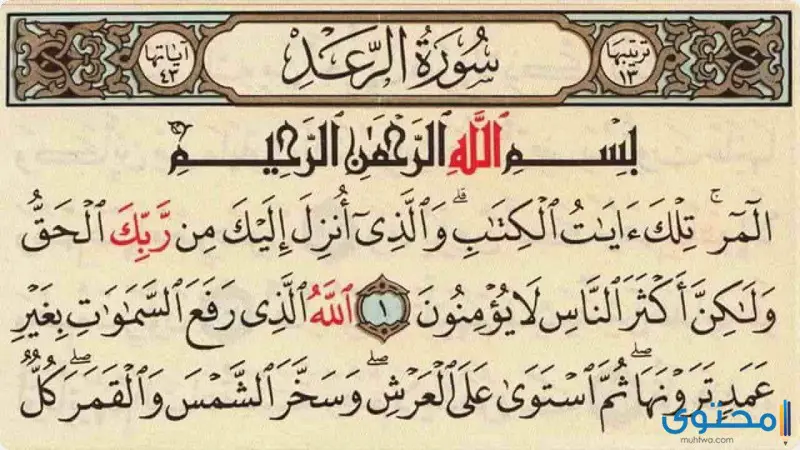 ترتيبها ١٣
سُورَةُ الرَّعْدِ
آياتها ٤٣
بِسْمِ اللَّهِ الرَّحْمَٰنِ الرَّحِيمِ
الٓمٓرۚ تِلْكَ ءَايَٰتُ الْكِتَٰبِۗ وَالَّذِىٓ أُنزِلَ إِلَيْكَ مِن رَّبِّكَ الْحَقُّ
وَلَٰكِنَّ أَكْثَرَ النَّاسِ لَا يُؤْمِنُونَ ١ اللَّهُ الَّذِى رَفَعَ السَّمَٰوَٰتِ بِغَيْرِ
عَمَدٍ تَرَوْنَهَاۖ ثُمَّ اسْتَوَىٰ عَلَى الْعَرْشِۖ وَسَخَّرَ الشَّمْسَ وَالْقَمَرَۖ كُلٌّ
محتوى
muhtwa.com